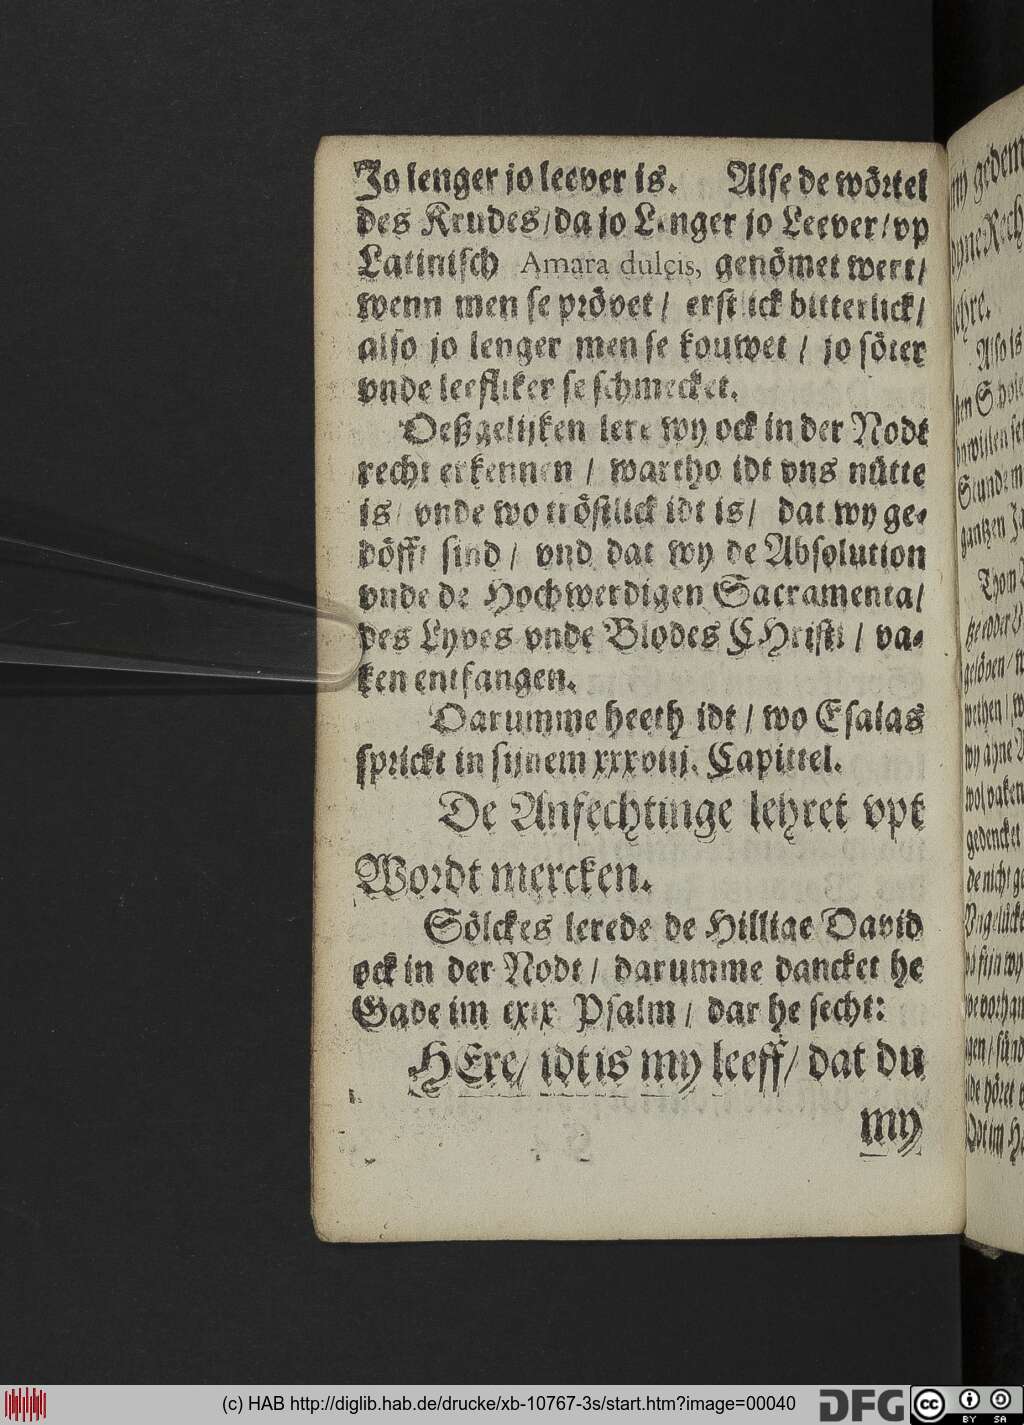 Jo lenger jo leever is. Alse de wörtel
des Krudes/ da jo Lenger jo Leever/ vp
Latinisch Amara dulcis, genömet wert/
wenn men se prövet / erstlick bitterlick/
also jo lenger men se kouwet / jo söter
vnde leefliker se schmecket.
Deßgelijken lere wy ock in der Nodt
recht erkennen / wartho idt vns nütte
is/ vnde wo tröstlick idt is/ dat wy ge-
döfft sind / vnd dat wy de Absolution
vnde de Hochwerdigen Sacramenta/
des Lyves vnde Blodes CHristi / va-
ken entfangen.
Darumme heeth idt / wo Esaias
sprickt in sijnem xxxviij. Capittel.
De Anfechtinge lehret vpt
Wordt mercken.
Sölckes lerede de Hillige David
ock in der Nodt / darumme dancket he
Gade im cxix Psalm / dar he secht:
HEre/ idt is my leeff/ dat du
my
(c) HAB http://diglib.hab.de/drucke/xb-10767-3s/start.htm?image=00040
DFG
cc
BY SA